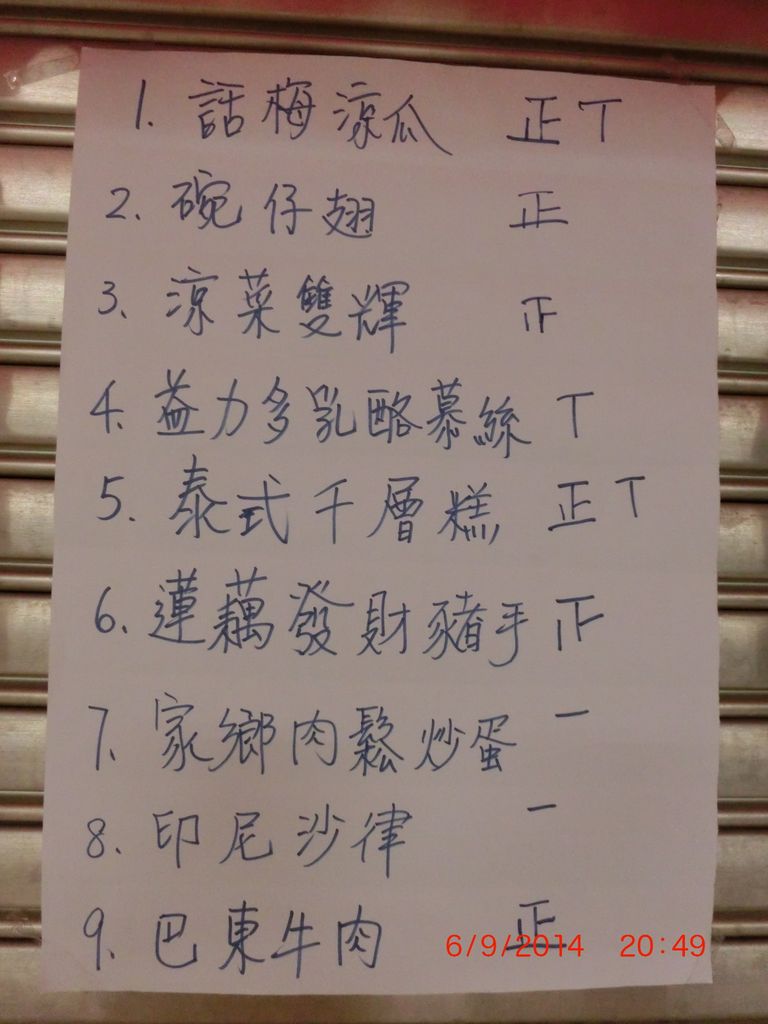 1. 話梅涼瓜 正丅
2. 碗仔翅 正
3. 涼菜雙輝 正
4. 益力多乳酪慕絲 丅
5. 泰式千層糕 正丅
6. 蓮藕發財豬手 正
7. 家鄉肉鬆炒蛋 一
8. 印尼沙律 一
9. 巴東牛肉 正
6/9/2014 20:49